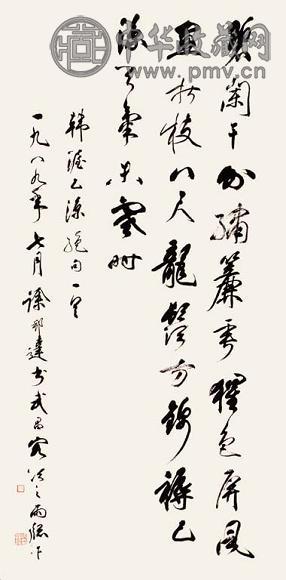 中华收藏网
www.pmv.cn
碧阑干外绣簾垂猩色屏风
画折枝八尺龙须方锦褥已
凉天气未寒时
韩偓已凉绝句一首
一九八九年七月徐邦达书武昌客次之雨牕下